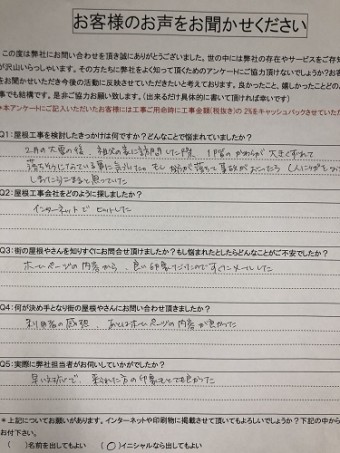 お客様のお声をお聞かせください
この度は弊社にお問い合わせを頂き誠にありがとうございました。世の中には弊社の存在やサービスをご存知
が沢山いらっしゃいます。その方たちに弊社をよく知って頂くためのアンケートにご協力頂けないでしょうか?お客
をお聞かせいただき今後の活動に反映させていただきたいと考えております。良かったこと、嬉しかったことどの
事でも結構です。是非ご協力お願い致します。(出来るだけ具体的に書いて頂ければ幸いです)
*本アンケートにご記入いただいたお客様には工事ご用命時に工事金額(税抜き)の 2%をキャッシュバックさせていた
Q1:屋根工事を検討したきっかけは何ですか?どんなことで悩まれていましたか?
2月の大雪の後、祖父の家に訪問した際、1階のかわらが大きくずれて
落ちそうになっている事に気づいた。もし 落ちて事故が
しまったらこまると思っていた
Q2:屋根工事会社をどのように探しましたか?
インターネットで ヒットした
Q3:街の屋根やさんを知りすぐにお問合せ頂けましたか?もし悩まれたとしたらどんなことがご不安でしたか?
ホームページの内容から、良い印象だったのですぐにメールした
Q4:何が決め手となり街の屋根やさんにお問い合わせ頂きましたか?
利用者の感想、あとはホームページの内容が良かった
Q5:実際に弊社担当者がお伺いしていかがでしたか?
早い対応で、来られた方の印象もとても良かった
*上記についてお願いがあります。インターネットや印刷物に掲載させて頂いてもよろしいでしょうか?下記の中から
お付下さい。
( )名前を出してもよい (○)イニシャルなら出してもよい